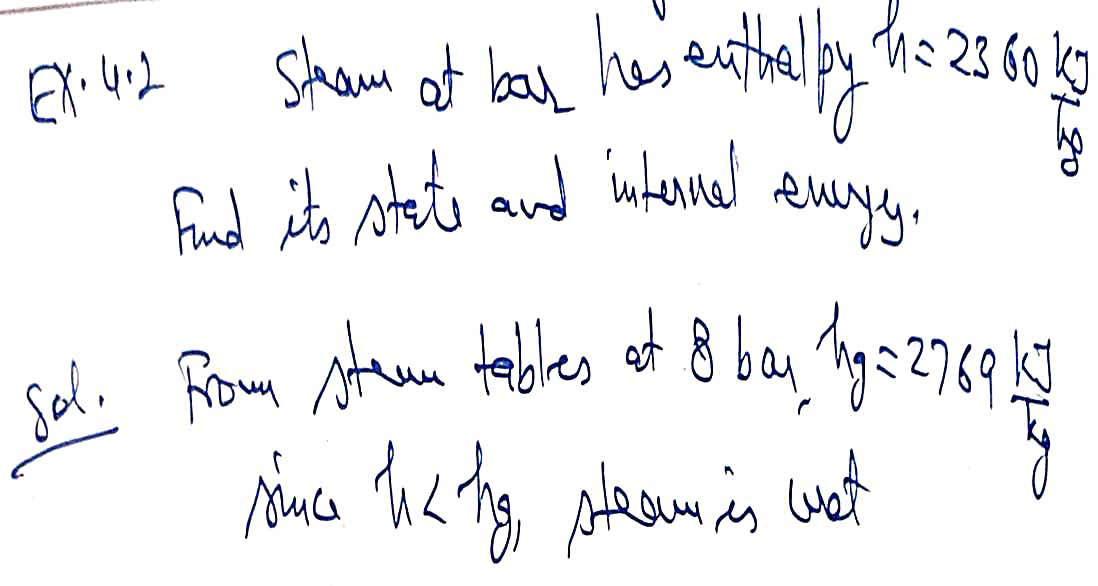 Ex. 4.2 Steam at bar has enthalpy h = 2360 kJ/kg
Find its state and internal energy.
Sol. From steam tables at 8 bar, hg = 2769 kJ/kg
since h < hg, steam is wet